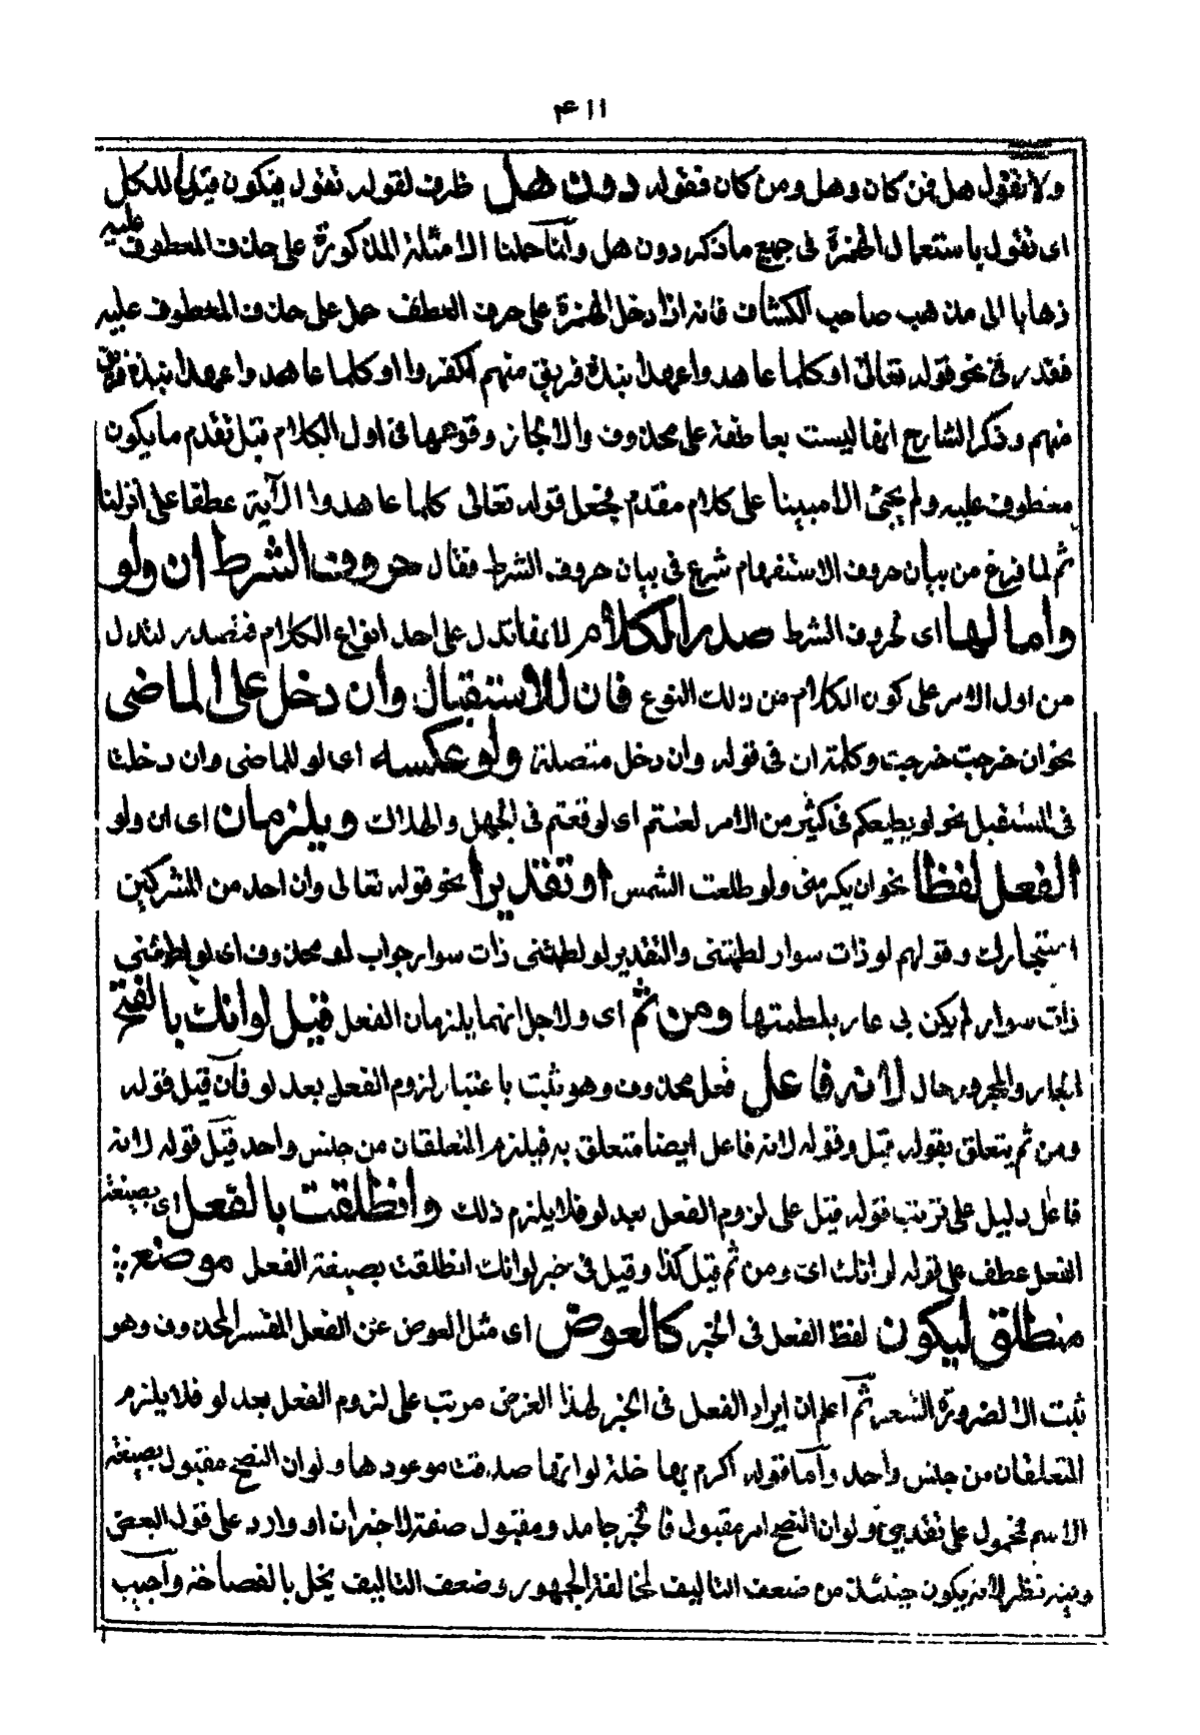 ٤١١
ولا تقول هل فمن كان وهل ومن كان فقوله دون هل ظرف لقوله تقول فيكون قيدا للكل
اى تقول باستعمال الهمزة فى جميع ما ذكر دون هل وانما حملنا الامثلة المذكورة على حذف المعطوف عليه
ذهابا الى مذهب صاحب الكشاف فانه اذا دخل الهمزة على حرف العطف حمل على حذف المعطوف عليه
فقدر فى نحو قوله تعالى اوكلما عاهدوا عهدا نبذه فريق منهم اكفروا اوكلما عاهدوا عهدا نبذه فريق
منهم وذكر الشارح انها ليست بعاطفة على محذوف والا لجاز وقوعها فى اول الكلام قبل تقدم ما يكون
معطوف عليه ولم يجئ الا مبينا على كلام مقدم فجعل قوله تعالى كلما عاهدوا الآية عطفا على انزلنا
ثم لما فرغ من بيان حروف الاستفهام شرع فى بيان حروف الشرط فقال حروف الشرط ان ولو
واما لها اى لحروف الشرط صدر الكلام لانها تدل على احد انواع الكلام فتصدر لتدل
من اول الامر على كون الكلام من ذلك النوع فان للاستقبال وان دخل على الماضى
نحو ان خرجت خرجت وكلمة ان فى قوله وان دخل متصلة ولو عكسه اى لو للماضى وان دخلت
فى المستقبل نحو لو يطيعكم فى كثير من الامر لعنتم اى لوقعتم فى الجهل والهلاك ويلزمان اى ان ولو
الفعل لفظا نحو ان يكرمنى ولو طلعت الشمس او تقديرا نحو قوله تعالى وان احد من المشركين
استجارك وقولهم لو ذات سوار لطمتنى والتقدير لو لطمتنى ذات سوار جواب لو محذوف اى لو لطمتنى
ذات سوار لم يكن بى عار بلطمتها ومن ثم اى ولاجل انهما يلزمان الفعل قيل لو انك بالفتح
الجار والمجرور حال لانه فاعل فعل محذوف وهو ثبت باعتبار لزوم الفعل بعد لو فان قيل قوله
ومن ثم يتعلق بقوله قيل وقوله لانه فاعل ايضا متعلق به فيلزم المتعلقان من جنس واحد قيل قوله لانه
فاعل دليل على ترتب قوله قيل على لزوم الفعل بعد لو فلا يلزم ذلك وانطلقت بالفعل اى بصيغة
الفعل عطف على قوله لو انك اى ومن ثم قيل كذا وقيل فى خبر لو انك انطلقت بصيغة الفعل موضع
منطلق ليكون لفظ الفعل فى الخبر كالعوض اى مثل العوض عن الفعل المفسر المحذوف وهو
ثبت الا لضرورة الشعر ثم اعلم ان ايراد الفعل فى الخبر لهذا الغرض مرتب على لزوم الفعل بعد لو فلا يلزم
المتعلقان من جنس واحد واما قوله اكرم بها خلة لو انها صدقت موعودها ولو ان النصح مقبول بصيغة
الاسم فمحمول على تقدير ولو ان النصح امر مقبول فالخبر جامد ومقبول صفة لا خبر ان او وارد على قول البعض
وفيه نظر لانه يكون حينئذ من ضعف التاليف لمخالفة الجمهور وضعف التاليف يخل بالفصاحة واجيب